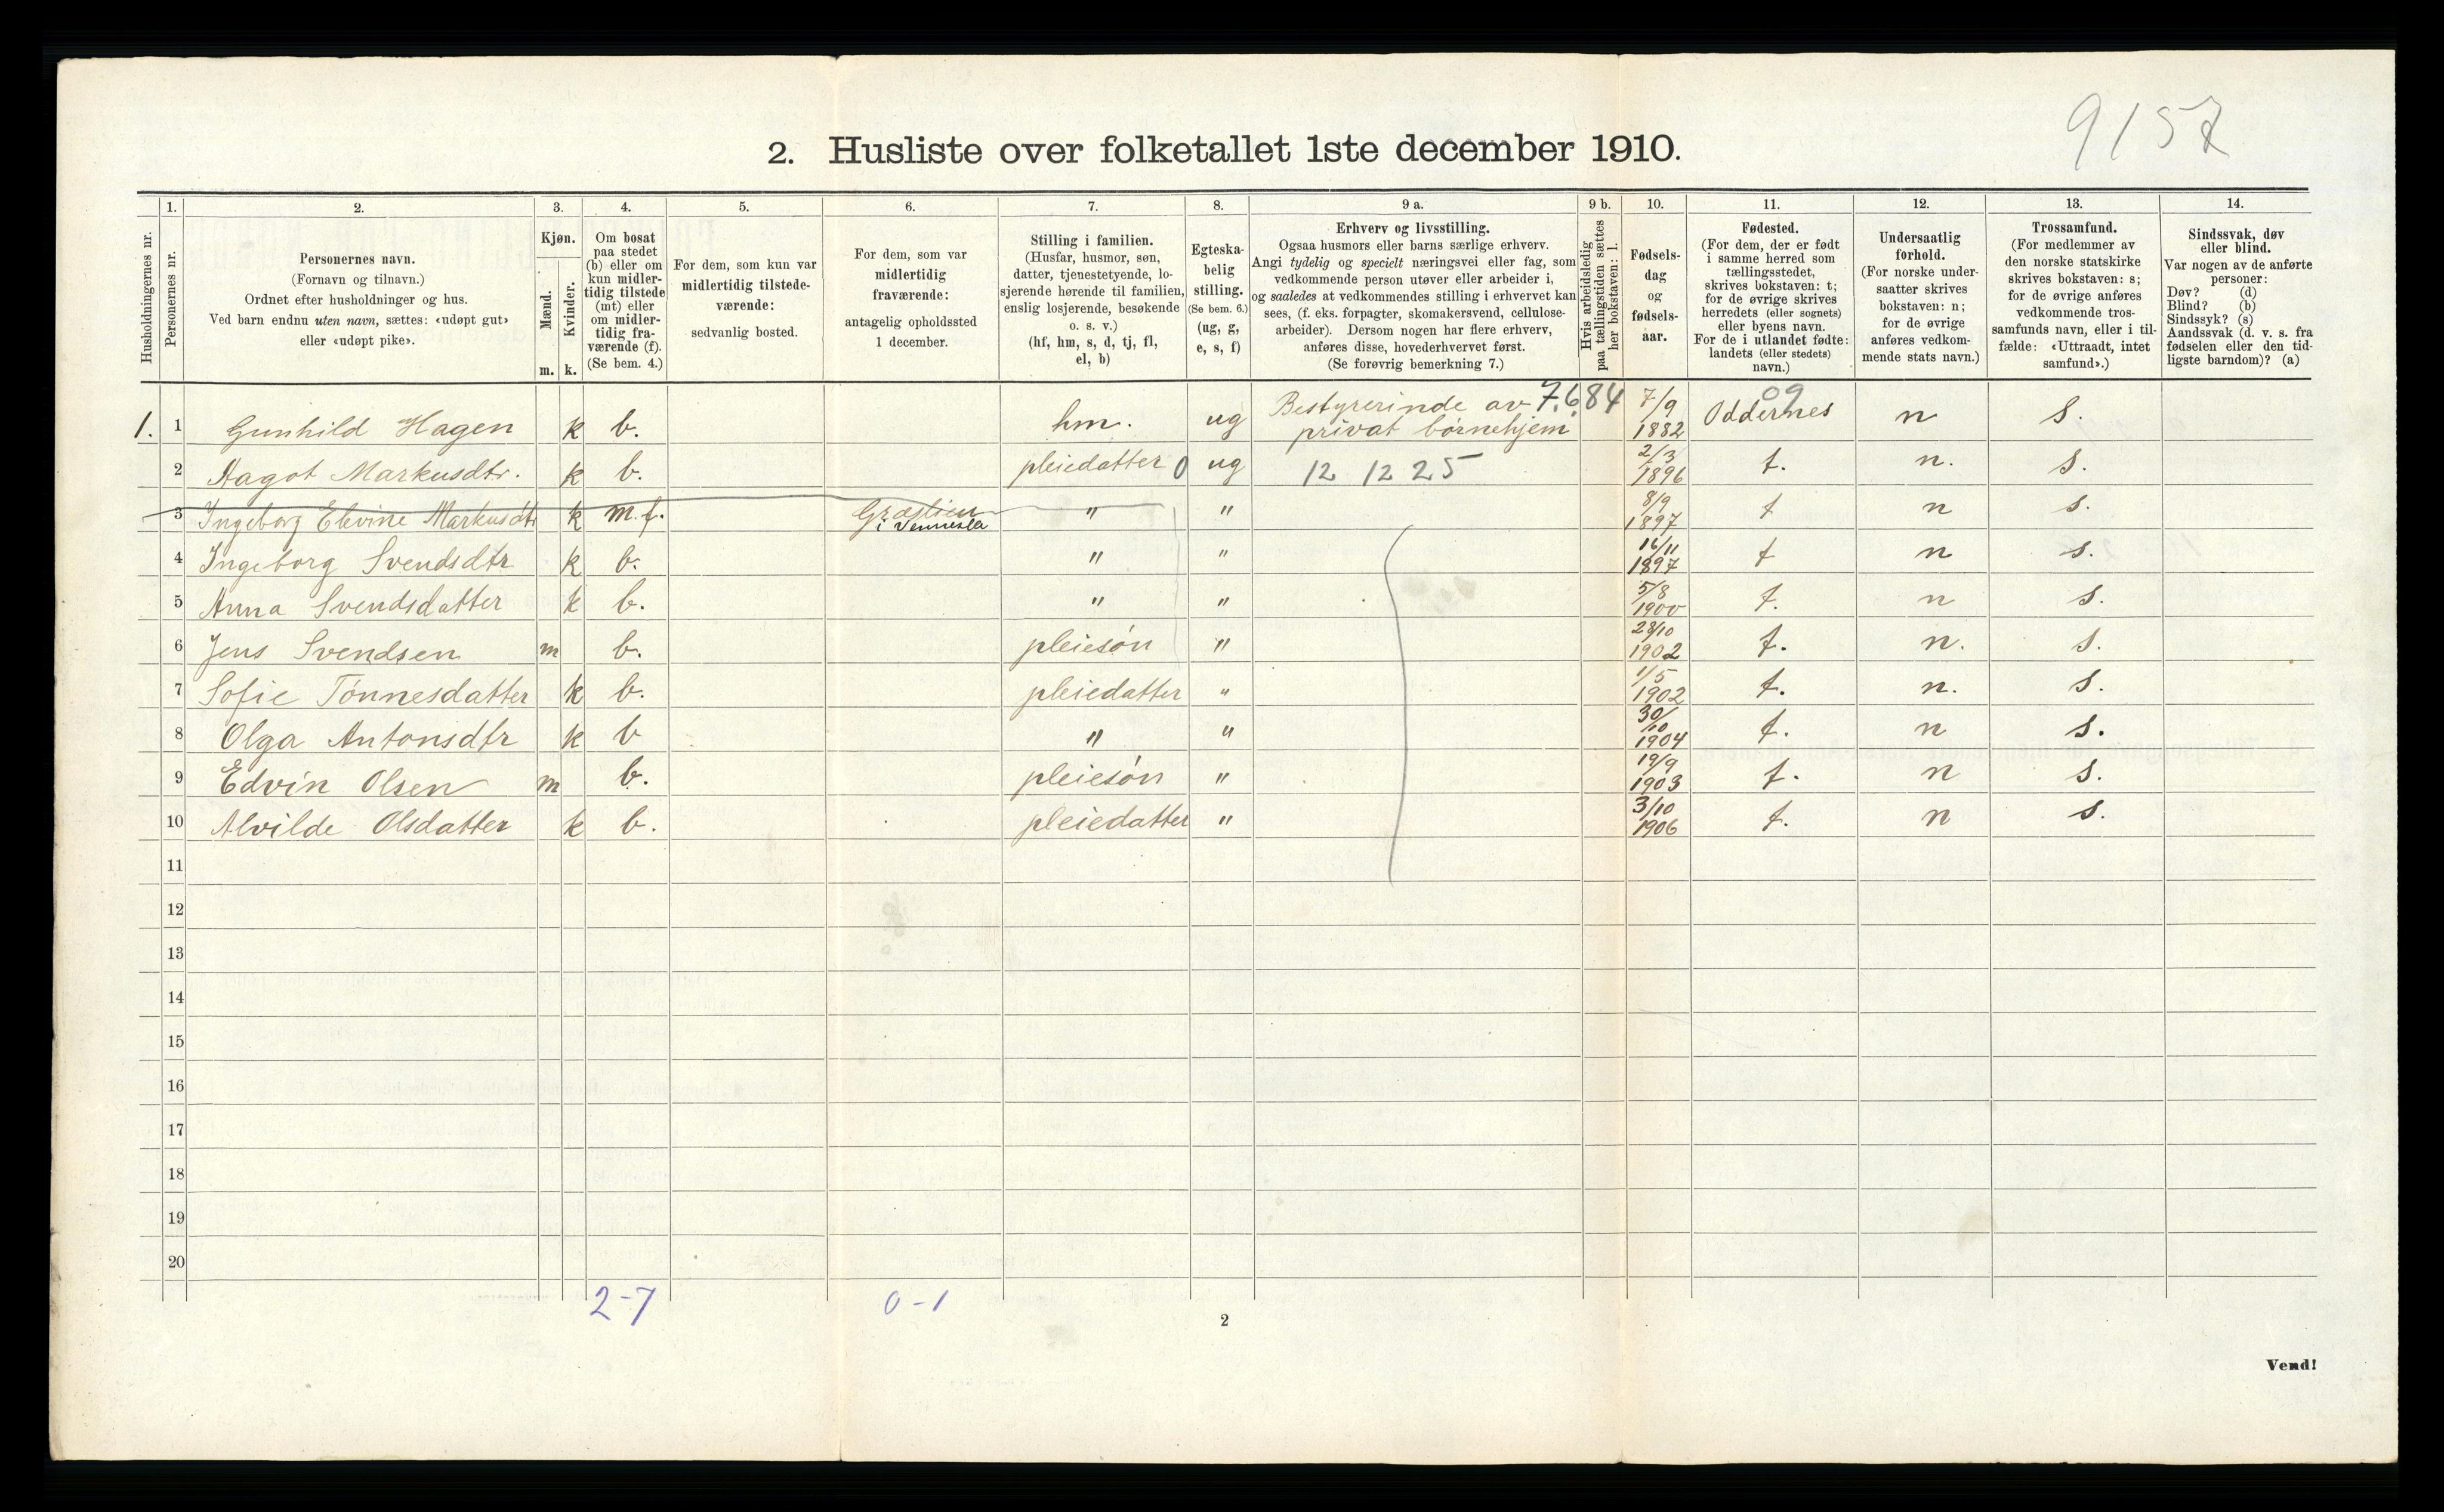 9157
2. Husliste over folketallet 1ste december 1910.
Husholdningernes nr.
1.
Personernes nr.
2.
Personernes navn.
(Fornavn og tilnavn.)
Ordnet efter husholdninger og hus.
Ved barn endnu uten navn, sættes: «udøpt gut»
eller «udøpt pike».
3.
Kjøn.
Mænd.
Kvinder.
m. k.
4.
Om bosat
paa stedet
(b) eller om
kun midler-
tidig tilstede
(mt) eller
om midler-
tidig fra-
værende (f).
(Se bem. 4.)
5.
For dem, som kun var
midlertidig tilstede-
værende:
sedvanlig bosted.
6.
For dem, som var
midlertidig
fraværende:
antagelig opholdssted
1 december.
7.
Stilling i familien.
(Husfar, husmor, søn,
datter, tjenestetyende, lo-
sjerende hørende til familien,
enslig losjerende, besøkende
o. s. v.)
(hf, hm, s, d, tj, fl,
el, b)
8.
Egteska-
belig
stilling.
(Se bem. 6.)
(ug, g,
e, s, f)
9 a.
Erhverv og livsstilling.
Ogsaa husmors eller barns særlige erhverv.
Angi tydelig og specielt næringsvei eller fag, som
vedkommende person utøver eller arbeider i,
og saaledes at vedkommendes stilling i erhvervet kan
sees, (f. eks. forpagter, skomakersvend, cellulose-
arbeider). Dersom nogen har flere erhverv,
anføres disse, hovederhvervet først.
(Se forøvrig bemerkning 7.)
9 b.
Hvis arbeidsledig
paa tællingstiden sættes
her bokstaven: l.
10.
Fødsels-
dag
og
fødsels-
aar.
11.
Fødested.
(For dem, der er født
i samme herred som
tællingsstedet,
skrives bokstaven: t;
for de øvrige skrives
herredets (eller sognets)
eller byens navn.
For de i utlandet fødte:
landets (eller stedets)
navn.)
12.
Undersaatlig
forhold.
(For norske under-
saatter skrives
bokstaven: n;
for de øvrige
anføres vedkom-
mende stats navn.)
13.
Trossamfund.
(For medlemmer av
den norske statskirke
skrives bokstaven: s;
for de øvrige anføres
vedkommende tros-
samfunds navn, eller i til-
fælde: «Uttraadt, intet
samfund».)
14.
Sindssvak, døv
eller blind.
Var nogen av de anførte
personer:
Døv? (d)
Blind? (b)
Sindssyk? (s)
Aandssvak (d. v. s. fra
fødselen eller den tid-
ligste barndom)? (a)
1. 1 Gunhild Hagen k b. hm. ug Bestyrerinde av privat børnehjem 7.6.84 7/9 1882 09 Oddernes n s.
2 Aagot Markusdtr. k b. pleiedatter 0 ug 12 12 25 2/3 1896 t. n. s.
3 Ingeborg Elevine Markusdtr k m.f. i Vennesla " " 8/9 1897 t n s.
4 Ingeborg Svendsdtr k b. " " 16/11 1897 t n s.
5 Anna Svendsdatter k b. " " 5/8 1900 t. n s.
6 Jens Svendsen m b. pleiesøn " 28/10 1902 t. n. s.
7 Sofie Tønnesdatter k b. pleiedatter " 1/5 1902 t. n. s.
8 Olga Antonsdtr k b " " 30/10 1904 t. n s.
9 Edvin Olsen m b. pleiesøn " 19/9 1903 t. n s.
10 Alvilde Olsdatter k b. pleiedatter " 3/10 1906 t. n s.
11
12
13
14
15
16
17
18
19
20
2-7 0-1
2
Vend!